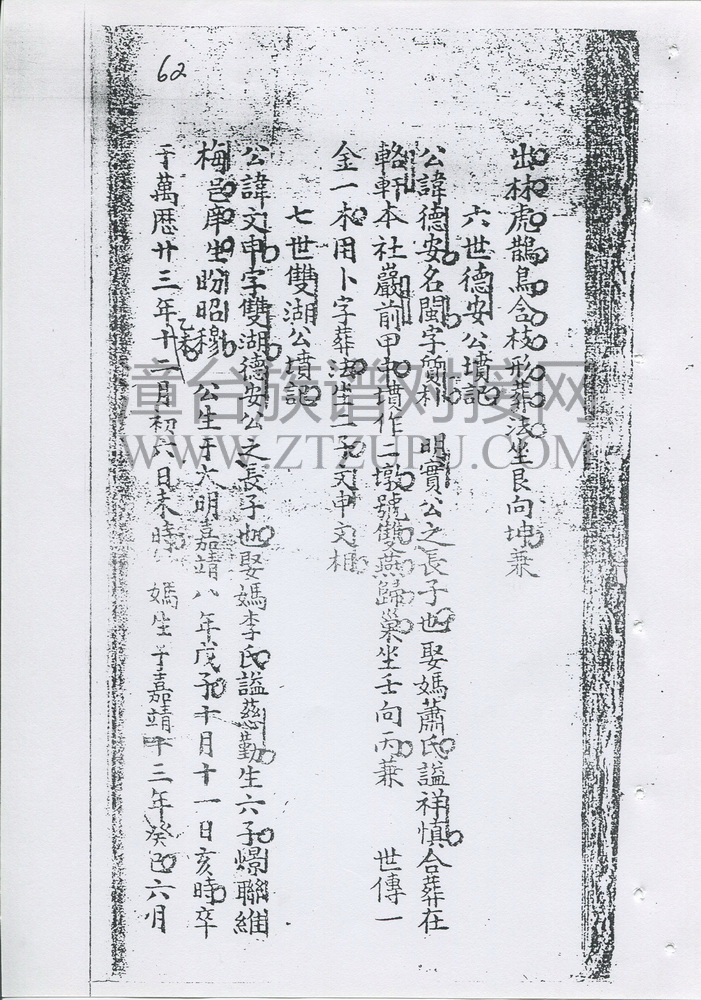 62
出林虎鵲鳥含枝形葬法坐艮向坤兼
六世德安公墳記
公諱德安名閩字質朴 明實公之長子也娶媽蕭氏謚祥慎合葬在
輅軒本社巖前甲中墳作二墩號雙燕歸巢坐壬向丙兼 世傳一
金一木用卜字葬法生二子文申文相
七世雙湖公墳記
公諱文申字雙湖德安公之長子也娶媽李氏謚慈勤生六子燝聯維
梅邑庠生盼昭穆 公生于大明嘉靖八年戊子十月十一日亥時卒
于萬曆廿三年乙未十二月初六日未時 媽生于嘉靖十三年癸巳六月
章台族谱对接网
WWW.ZTZUPU.COM